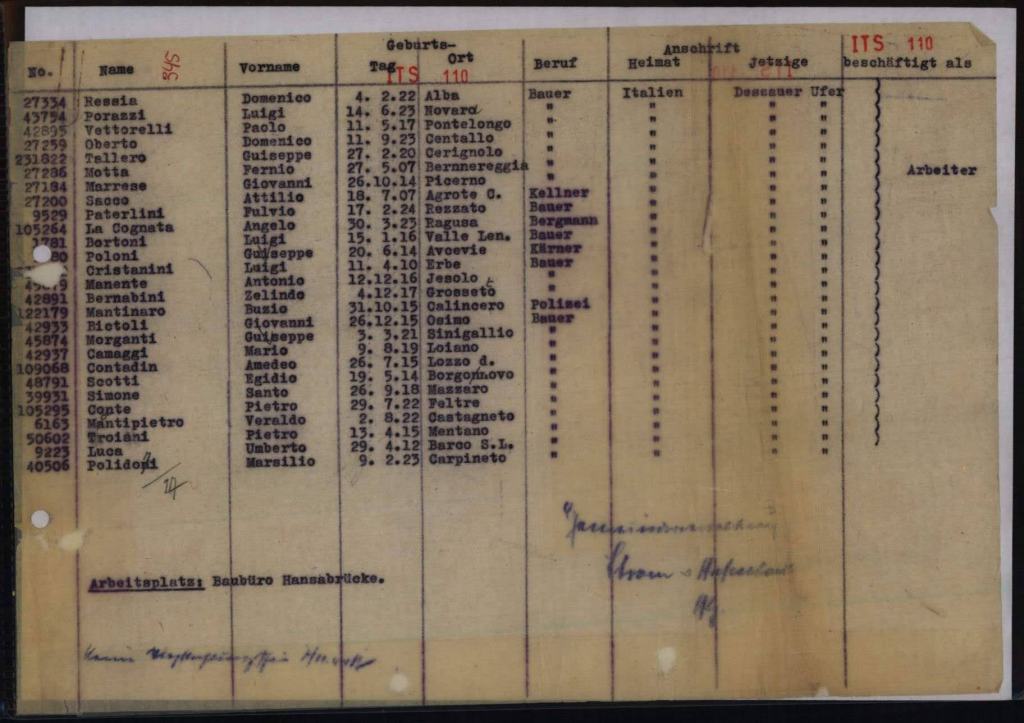 ITS 110
Geburts- Anschrift
No. Name Vorname Tag Ort Beruf Heimat Jetzige beschäftigt als
345
ITS 110
27334 Ressia Domenico 4. 2.22 Alba Bauer Italien Dessauer Ufer
43754 Porazzi Luigi 14. 6.23 Novara " " " "
42895 Vettorelli Paolo 11. 5.17 Pontelongo " " " "
27259 Oberto Domenico 11. 9.23 Centallo " " " "
231822 Tallero Guiseppe 27. 2.20 Cerignolo " " " "
27286 Motta Fernio 27. 5.07 Bernnereggia " " " " Arbeiter
27184 Marrese Giovanni 26.10.14 Picerno " " " "
27200 Sacco Attilio 18. 7.07 Agrote C. Kellner " " "
9529 Paterlini Fulvio 17. 2.24 Rezzato Bauer " " "
105264 La Cognata Angelo 30. 3.23 Ragusa Bergmann " " "
1781 Bortoni Luigi 15. 1.16 Valle Len. Bauer " " "
80 Poloni Guiseppe 20. 6.14 Avoevie Kärner " " "
Cristanini Luigi 11. 4.10 Erbe Bauer " " "
Manente Antonio 12.12.16 Jesolo " " " "
42891 Bernabini Zelindo 4.12.17 Grosseto " " " "
122179 Mantinaro Buzio 31.10.15 Calincero Polizei " " "
42933 Bictoli Giovanni 26.12.15 Osimo Bauer " " "
45874 Morganti Guiseppe 3. 3.21 Sinigallio " " " "
42937 Camaggi Mario 9. 8.19 Loiano " " " "
109068 Contadin Amedeo 26. 7.15 Lozzo d. " " " "
48791 Scotti Egidio 19. 5.14 Borgonnovo " " " "
39931 Simone Santo 26. 9.18 Mazzaro " " " "
105295 Conte Pietro 29. 7.22 Feltre " " " "
6163 Mantipietro Veraldo 2. 8.22 Castagneto " " " "
50602 Troiani Pietro 13. 4.15 Mentano " " " "
9223 Luca Umberto 29. 4.12 Barco S.L. " " " "
40506 Polidoni Marsilio 9. 2.23 Carpineto " " " "
Arbeitsplatz: Baubüro Hansabrücke.